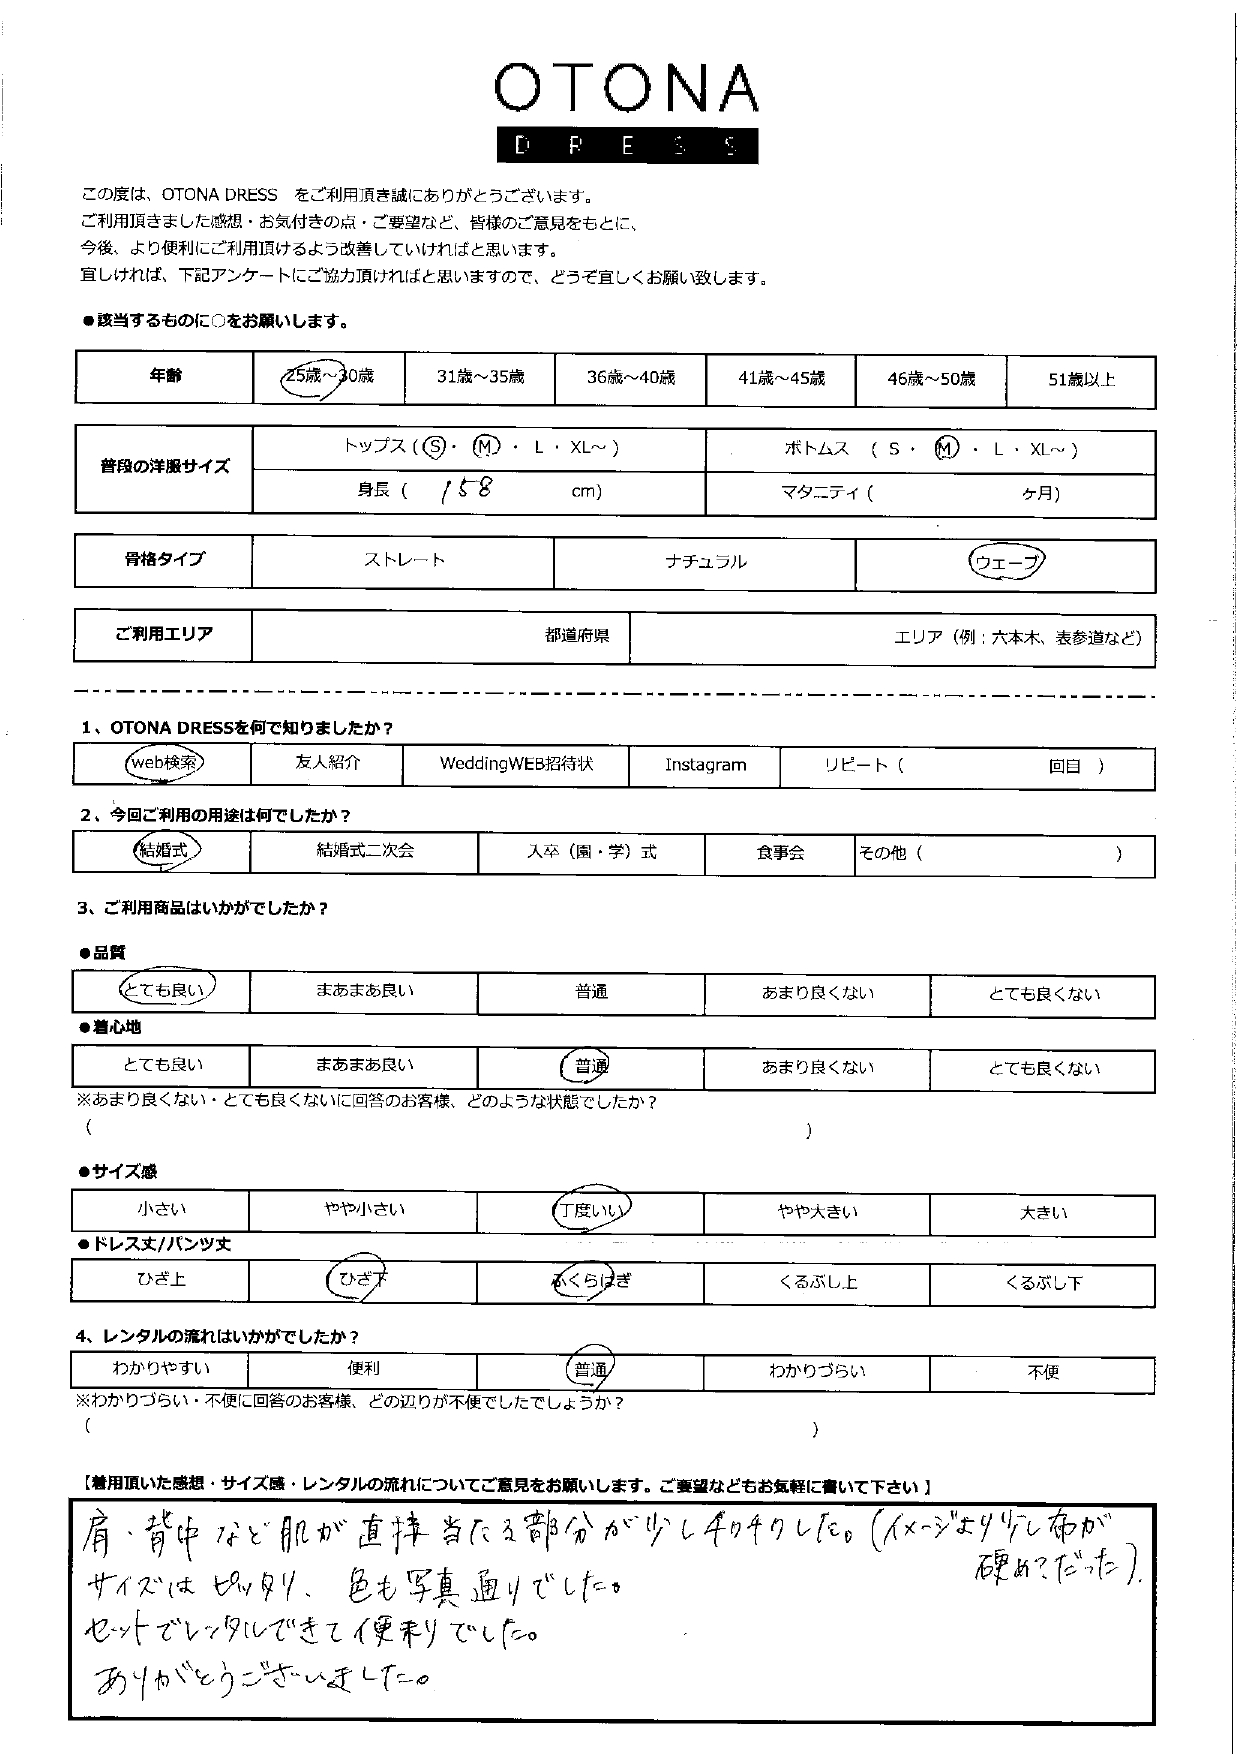 OTONA
DRESS
この度は、OTONA DRESS　をご利用頂き誠にありがとうございます。
ご利用頂きました感想・お気付きの点・ご要望など、皆様のご意見をもとに、
今後、より便利にご利用頂けるよう改善していければと思います。
宜しければ、下記アンケートにご協力頂ければと思いますので、どうぞ宜しくお願い致します。
●該当するものに○をお願いします。
年齢 25歳～30歳 31歳～35歳 36歳～40歳 41歳～45歳 46歳～50歳 51歳以上
普段の洋服サイズ トップス (S・ M ・ L ・ XL～ ) ボトムス ( S ・ M ・ L ・ XL～ )
身長 ( 158 cm) マタニティ ( ヶ月)
骨格タイプ ストレート ナチュラル ウェーブ
ご利用エリア 都道府県 エリア（例：六本木、表参道など）
1、OTONA DRESSを何で知りましたか？
web検索 友人紹介 WeddingWEB招待状 Instagram リピート ( 回目 )
2、今回ご利用の用途は何でしたか？
結婚式 結婚式二次会 入卒（園・学）式 食事会 その他 ( )
3、ご利用商品はいかがでしたか？
●品質
とても良い まあまあ良い 普通 あまり良くない とても良くない
●着心地
とても良い まあまあ良い 普通 あまり良くない とても良くない
※あまり良くない・とても良くないに回答のお客様、どのような状態でしたか？
( )
●サイズ感
小さい やや小さい 丁度いい やや大きい 大きい
●ドレス丈/パンツ丈
ひざ上 ひざ下 ふくらはぎ くるぶし上 くるぶし下
4、レンタルの流れはいかがでしたか？
わかりやすい 便利 普通 わかりづらい 不便
※わかりづらい・不便に回答のお客様、どの辺りが不便でしたでしょうか？
( )
【着用頂いた感想・サイズ感・レンタルの流れについてご意見をお願いします。ご要望などもお気軽に書いて下さい 】
肩・背中など肌が直接当たる部分が少しチクチクした。(イメージより少し布が
硬めだった).
サイズはピッタリ、色も写真通りでした。
セットでレンタルできて便利でした。
ありがとうございました。